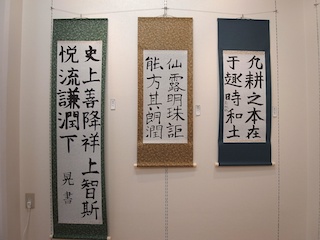 凡耕之本在
于趣時和土
仙露明珠詎
能方其朗潤
史上善降祥上智斯
悦流謙潤下
晃書